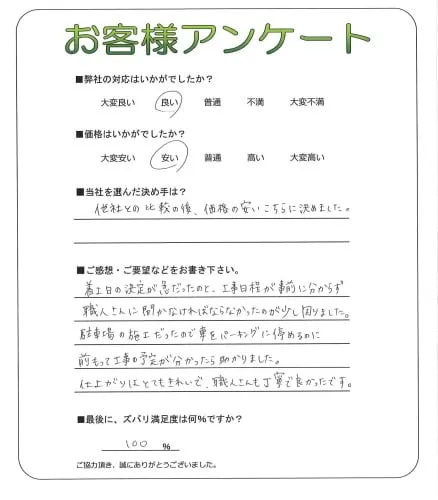 お客様アンケート
■弊社の対応はいかがでしたか?
大変良い 良い 普通 不満 大変不満
■価格はいかがでしたか?
大変安い 安い 普通 高い 大変高い
■当社を選んだ決め手は?
他社との比較の後、価格の安いこちらに決めました。
■ご感想・ご要望などをお書き下さい。
着工日の決定が急だったのと、工事日程が事前に分からず
職人さんに聞かなければならなかったのが少し困りました。
駐車場の施工だったので車をパーキングに停めるのに
前もって工事の予定が分かったら助かりました。
仕上がりはとてもきれいで、職人さんも丁寧で良かったです。
■最後に、ズバリ満足度は何%ですか?
100 %
ご協力頂き、誠にありがとうございました。